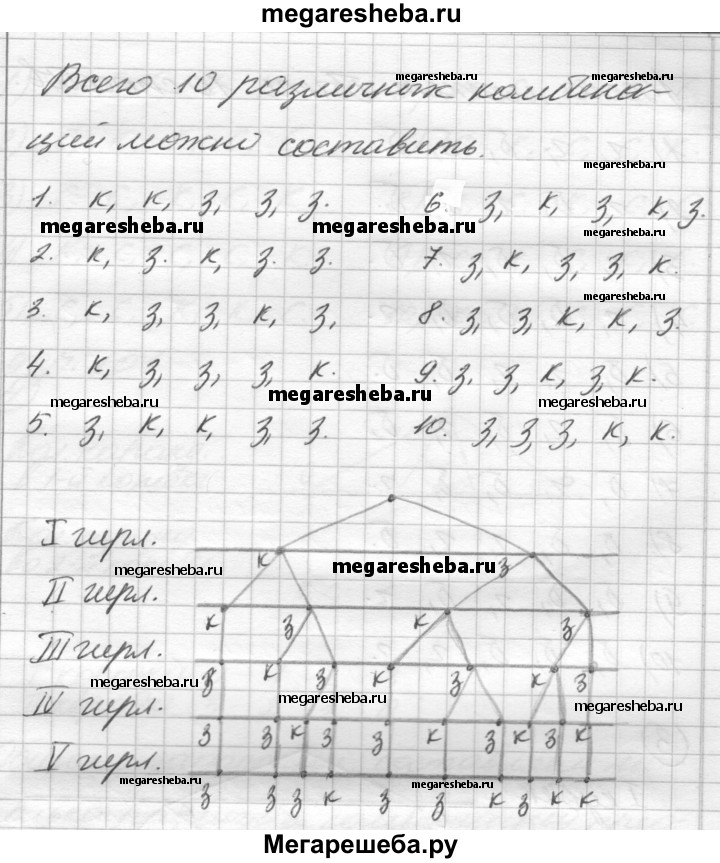 megaresheba.ru
Всего 10 различных комбина-
megaresheba.ru megaresheba.ru
ций можно составить.
megaresheba.ru
1. к, к, з, з, з. 6. з, к, з, к, з.
megaresheba.ru megaresheba.ru megaresheba.ru
2. к, з. к, з. з. 7. з, к, з, з, к.
megaresheba.ru
3. к, з, з, к, з, 8. з, з, к, к, з.
4. к, з, з, з, к. 9. з, з, к, з, к.
megaresheba.ru megaresheba.ru megaresheba.ru
5. з, к, к, з, з. 10. з, з, з, к, к.
I гирл.
к з
megaresheba.ru megaresheba.ru
II гирл.
к з к з
III гирл.
з к з к з к з
megaresheba.ru megaresheba.ru megaresheba.ru
IV гирл.
з з к з з к з к з к
V гирл.
megaresheba.ru megaresheba.ru
з з з к з з к з к к
Мегарешеба.ру